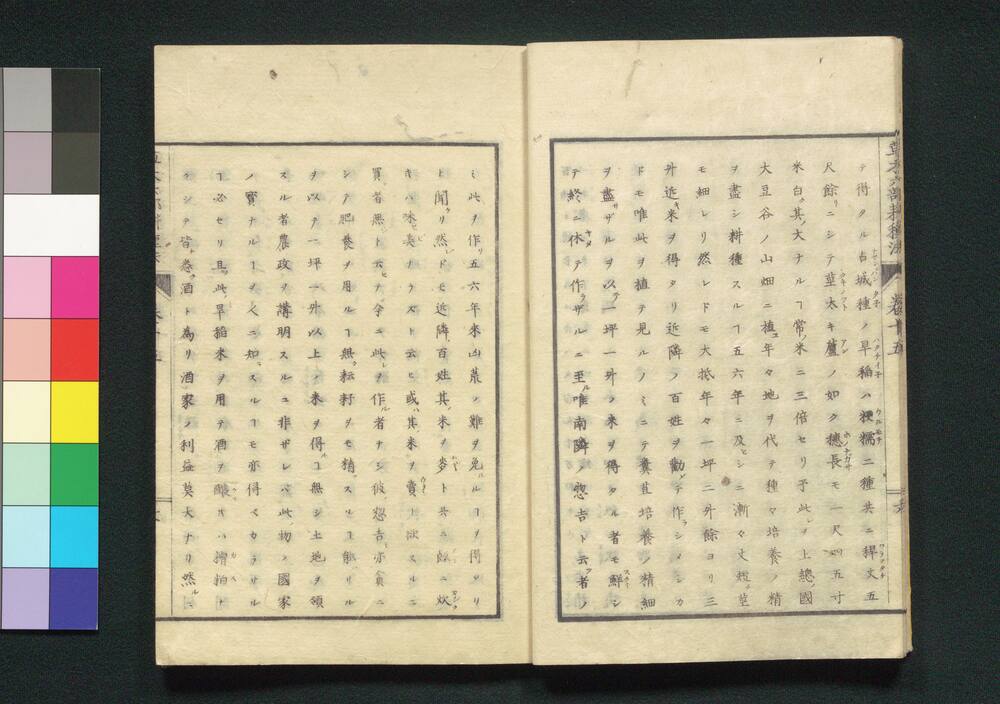 草木六部耕種法 巻十五
テ得タル占城種ノ早稲ハ粳糯二種共ニ稈丈五
尺餘リニシテ莖太キ蘆ノ如ク穂長モ一尺四五寸
米白ク其大ナルヿ常ノ米ニ三倍セリ予此レヲ上總國
大豆谷ノ山畑ニ植エ年々地ヲ代テ種々培養ノ精
ヲ盡シ耕種スルヿ五六年ニ及ヒシニ漸々丈
モ細レリ然レドモ大抵年々一坪二升餘ヨリ三
升近キ米ヲ得タリ近隣ノ百姓ヲ勸メテ作ラシメシカ
ドモ唯此ヲ植テ見ルノミニテ糞苴培養ノ精細
ヲ盡サザルヲ以テ一坪一升ノ米ヲ得タル者モ鮮シ
テ終ニ休テ作ラザルニ至ル唯南隣ノ惣吉ト云フ者ノ
ミ此ヲ作リ五六年来凶荒ノ難ヲ免ルヽヿヲ得タリ
ト聞ケリ然レドモ近隣ノ百姓其米ヲ麥ト共ニ飯ニ炊
キハ味美ナラズト云ヒ或ハ其米ヲ賣ント欲スルニ
買フ者無シト云ヒテ余ニ此レヲ作ル者ナシ彼ノ惣吉モ亦貧ニ
シテ肥養ヲ用ルヿ無ク耘耔ヲモ精スルヿ能ハザル
ヲ以テ一坪一升以上ノ米ヲ得ルヿ無シ土地ヲ領
スル者農政ヲ講明スルニ非ザレバ此物ノ國家
ノ寶ナルヿヲ人ニ知ラスルヿモ亦得ベカラザル
ヿ必セリ且ツ此早稲米ヲ用テ酒ヲ醸セハ
ラシテ皆酒ト為リ酒家ノ利益莫大ナリ然ルニ